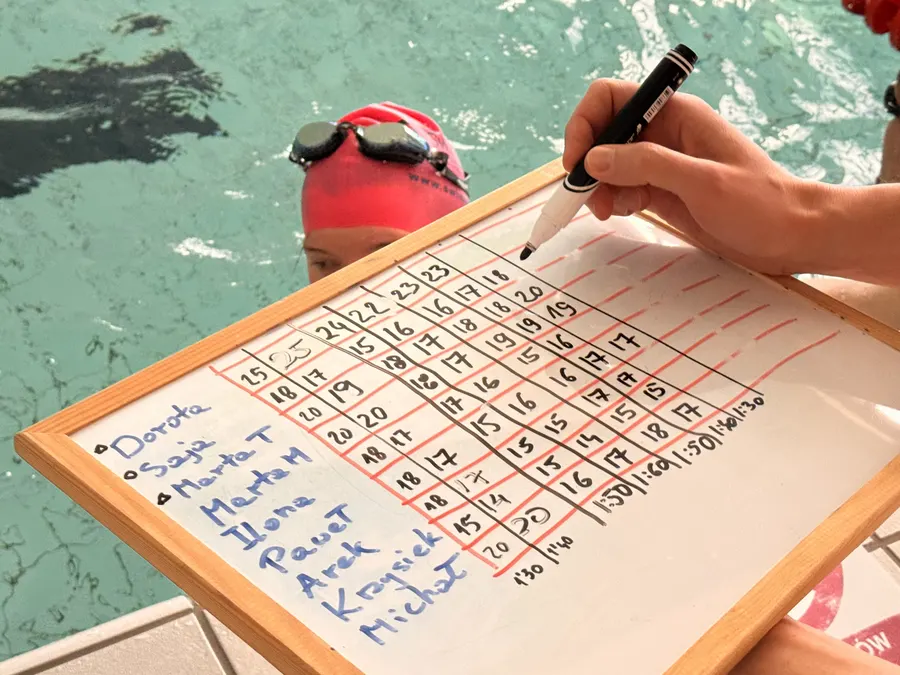 www.s
Dorota 25 25 24 22 23 23
Saja 18 17 15 16 16 17 18
Marta T 20 19 18 17 18 18 20
Marta M 20 20 18 17 19 19 19
Ilona 18 17 17 16 15 16
Paweł 18 17 15 16 16 17 17
Arek 18 17 15 15 17 17
Krzysiek 15 14 15 14 15 15
Michał 20 20 16 17 18 17
1'30 1'40 1:50 1:60 1:50 1:40 1:30
ÓW